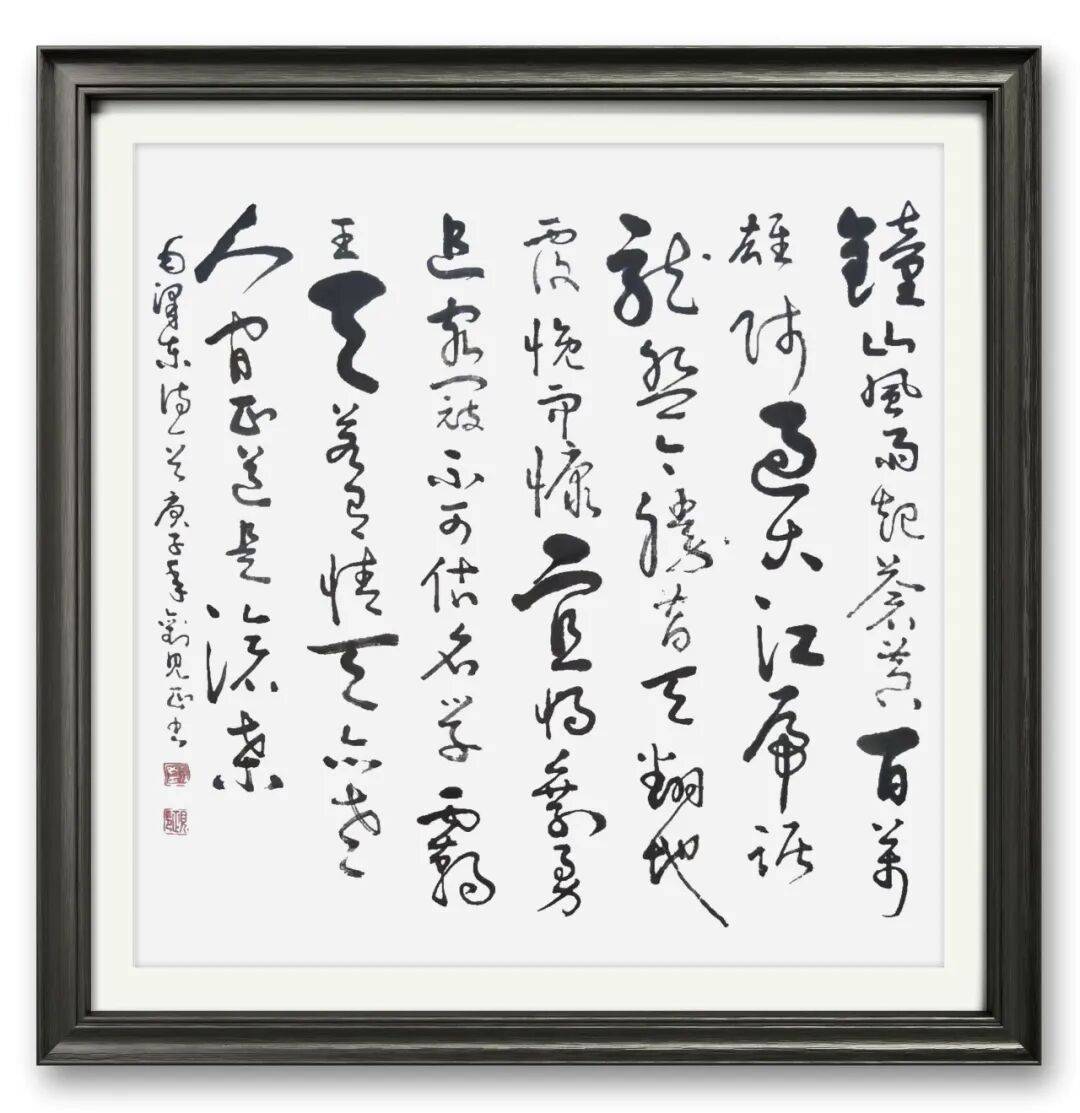 鐘山風雨起蒼黃百萬
雄師過大江虎踞
龍盤今勝昔天翻地
覆慨而慷宜將剩勇
追窮寇不可沽名學霸
王天若有情天亦老
人間正道是滄桑
毛澤東詩一首庚子年劉見正書